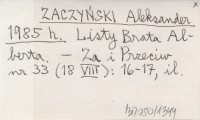 ZACZYŃSKI Aleksander
1985 h. Listy Brata Al-
berta. – Za i Przeciw
nr 33 (18 VIII): 16-17, il.